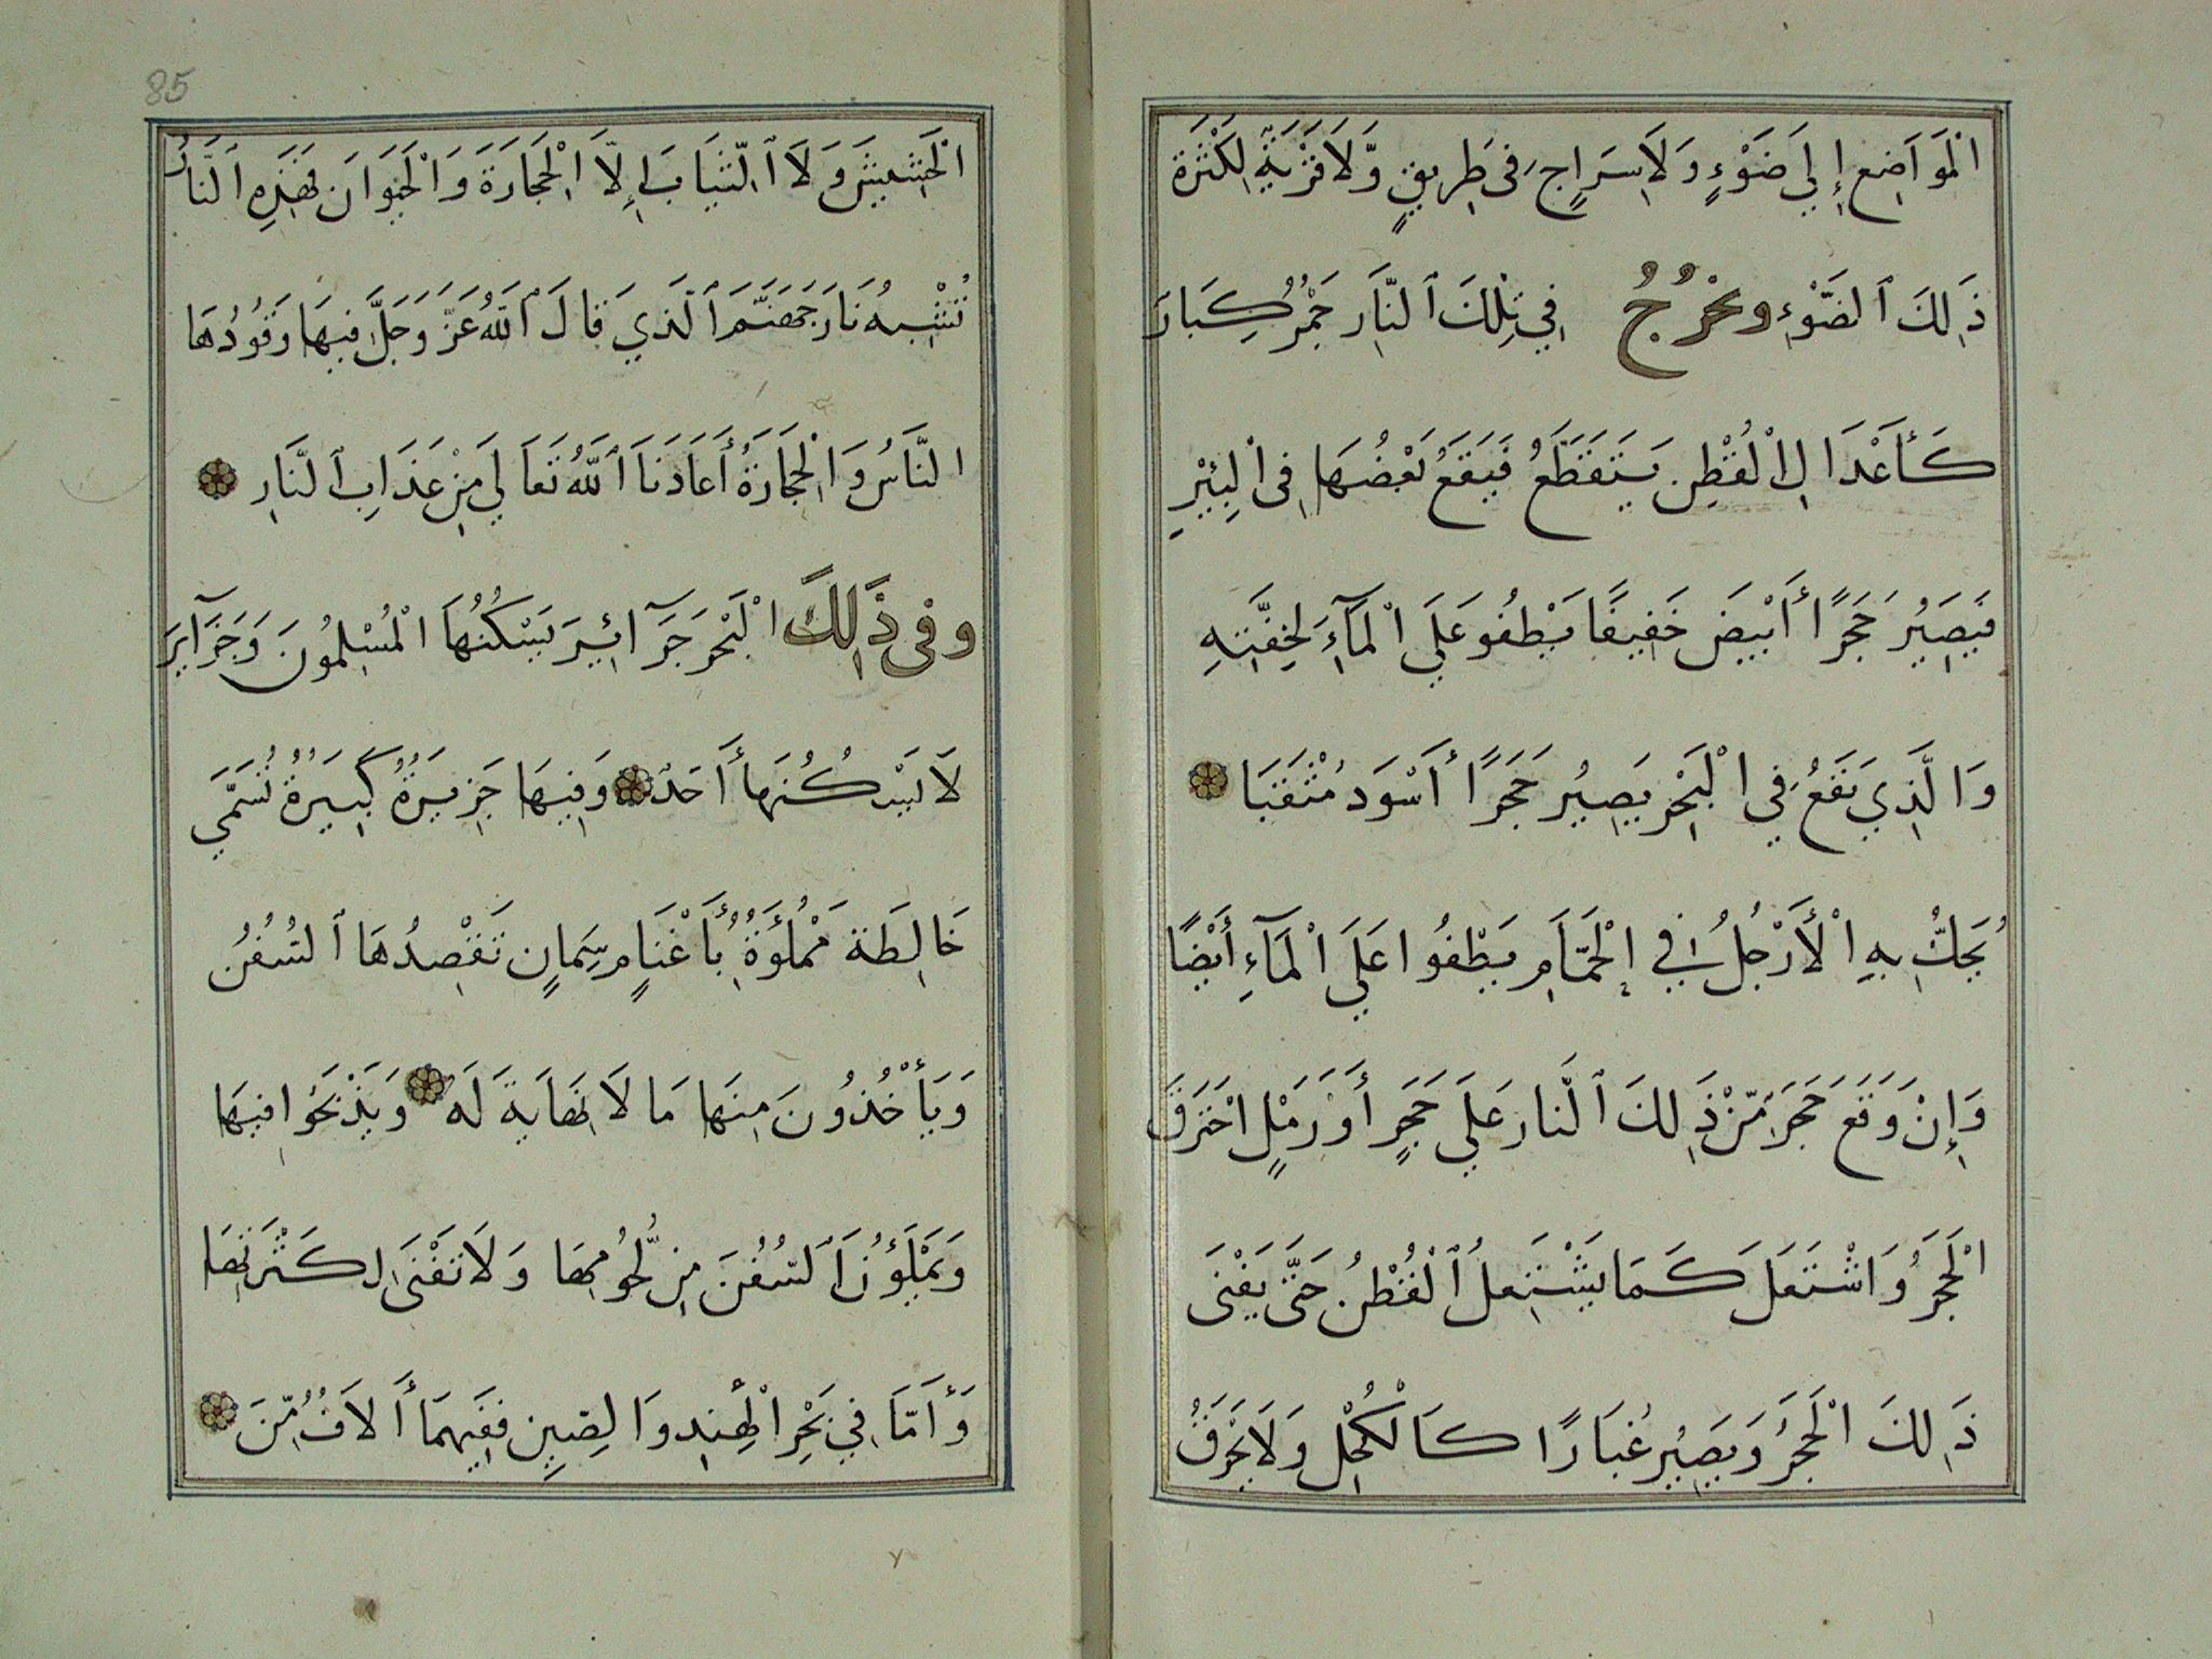 الْمَوَاضِعِ إِلَي ضَوْءٍ وَلَا سِرَاجٍ فِى طَرِيقٍ وَّلَا قَرْيَةٍ لِكَثْرَة
ذَلِكَ ٱلضَّوْءِ وَيَخْرُجُ فِي تِلْكَ ٱلنَّارِ جَمْرٌ كِبَارَ
كَأَعْدَالِ الْقُطْنِ يَتَقَطَّعُ فَيَقَعُ بَعْضُهَا فِى الْبِئْرِ
فَيَصِيْرُ حَجَرًا أَبْيَضَ خَفِيفًا يَطْفُو عَلَي الْمَآءِ لِخِفَّتِهِ
وَالَّذِي يَقَعُ فِي الْبَحْرِ يَصِيْرُ حَجَرًا أَسْوَدَ مُثْقَبَا
يُحَكُّ بِهِ الْأَرْجُلُ فِي الْحَمَّامِ يَطْفُوا عَلَي الْمَآءِ أَيْضًا
وَإِنْ وَقَعَ حَجَرٌ مِّنْ ذَلِكَ ٱلنَّارِ عَلَي حَجَرٍ أَوْ رَمْلٍ احْتَرَقَ
الْحَجَرُ وَاشْتَعَلَ كَمَا يَشْتَعِلُ ٱلْقُطْنُ حَتَّى يَفْنَى
ذَلِكَ الْحَجَرُ وَيَصِيْرُ غُبَارًا كَالْكُحْلِ وَلَا يَحْرَقُ
الْحَشِيْشَ وَلَا ٱلثِّيَابَ إِلَّا الْحِجَارَةَ وَالْحَيَوَانَ فَهَذِهِ ٱلنَّارُ
تُشْبِهُ نَارَ جَهَنَّمَ ٱلَّذِي قَالَ ٱللَّهُ عَزَّ وَجَلَّ فِيهَا وَقُوْدُهَا
النَّاسُ وَالْحِجَارَةُ أَعَاذَنَا ٱللَّهُ تَعَالَي مِنْ عَذَابِ ٱلنَّارِ
وفى ذَلِكَ الْبَحْرِ جَزَآئِيرَ يَسْكُنُهَا الْمُسْلِمُونَ وَجَزَآيرَ
لَا يَسْكُنُهَا أَحَدٌ وَفِيهَا جَزِيرَةٌ كَبِيرَةٌ تُسَمَّي
خَالِطَة مَمْلُؤَةٌ بِأَغْنَامٍ سِمَانٍ تَقْصِدُهَا ٱلسُّفُنُ
وَيَأْخُذُونَ مِنهَا مَا لَا نِهَايَةَ لَهُ وَيَذْبَحُوا فِيهَا
وَيَمْلَؤُنَ ٱلسُّفُنَ مِنْ لُّحُومِهَا وَلَا تَفْنَى لِكَثْرَتِهَا
وَأَمَّا فِي بَحْرِ الْهِنْدِ وَالصِّينِ فَفِيهِمَا أَلَافٌ مِّنَ
85